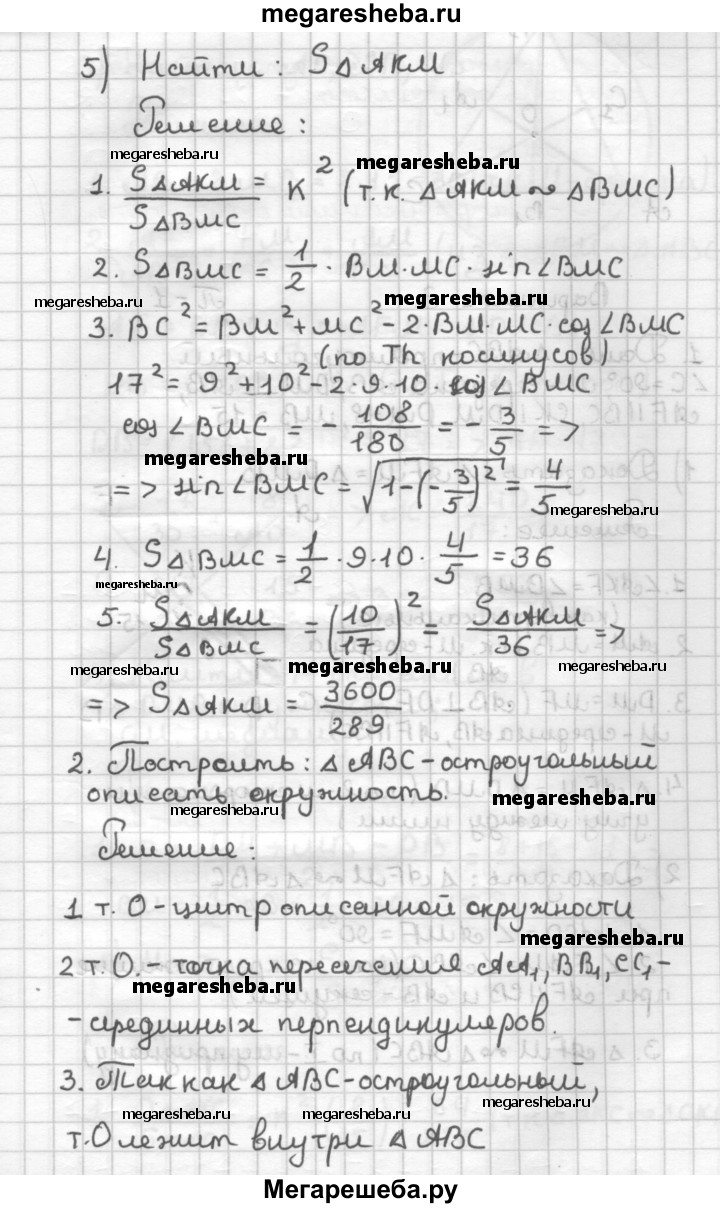 megaresheba.ru
5) Найти: S△AKM
Решение:
megaresheba.ru
megaresheba.ru
1. S△AKM / S△BMC = K² (т.к. △AKM ~ △BMC)
2. S△BMC = 1/2 · BM·MC · sin∠BMC
megaresheba.ru
megaresheba.ru
3. BC² = BM² + MC² - 2·BM·MC·cos∠BMC
(по Th косинусов)
17² = 9² + 10² - 2·9·10·cos∠BMC
cos∠BMC = - 108/180 = - 3/5 =>
megaresheba.ru
=> sin∠BMC = √(1-(-3/5)²) = 4/5
megaresheba.ru
4. S△BMC = 1/2 · 9·10 · 4/5 = 36
megaresheba.ru
5. S△AKM / S△BMC = (10/17)² = S△AKM / 36 =>
megaresheba.ru
megaresheba.ru
megaresheba.ru
=> S△AKM = 3600/289
2. Построить: △ABC - остроугольный
описать окружность.
megaresheba.ru
megaresheba.ru
Решение:
1 т. O - центр описанной окружности
megaresheba.ru
2 т. O. - точка пересечения AA₁, BB₁, CC₁ -
megaresheba.ru
- серединных перпендикуляров.
3. Так как △ABC - остроугольный,
megaresheba.ru
megaresheba.ru
megaresheba.ru
т. O лежит внутри △ABC
Мегарешеба.ру